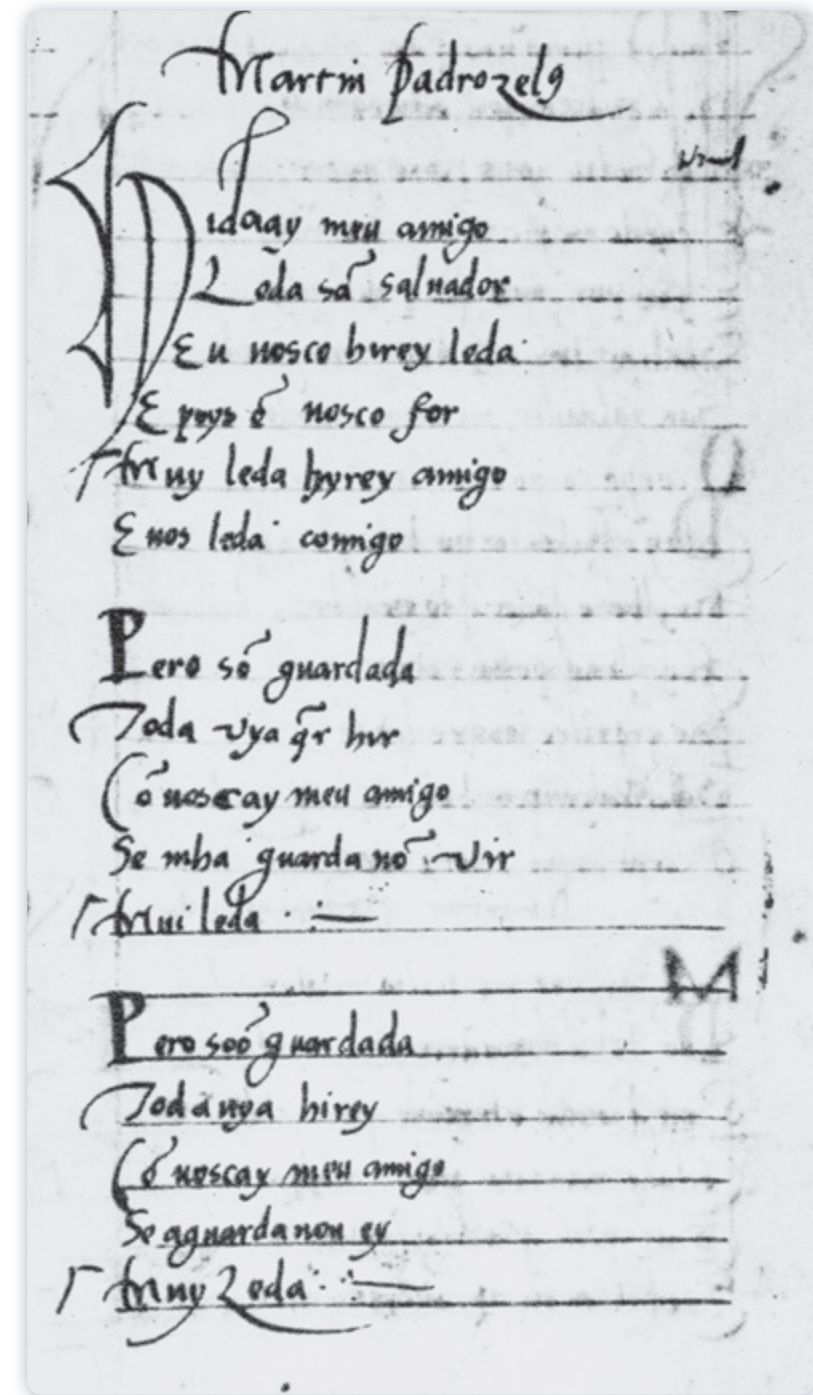 Martin Padrozelꝯ
Hidaay meu amigo
Leda a sã saluador
Eu uosco hirey leda
E poys cõ uosco for
Muy leda hyrey amigo
E uos leda comigo
Pero sõ guardada
Toda uya q̃r hir
Cõ uoscay meu amigo
Se mha guarda nõ uir
Mui leda
Pero soõ guardada
Todauya hirey
Cõ uoscay meu amigo
Se aguarda non ey
Muy Leda